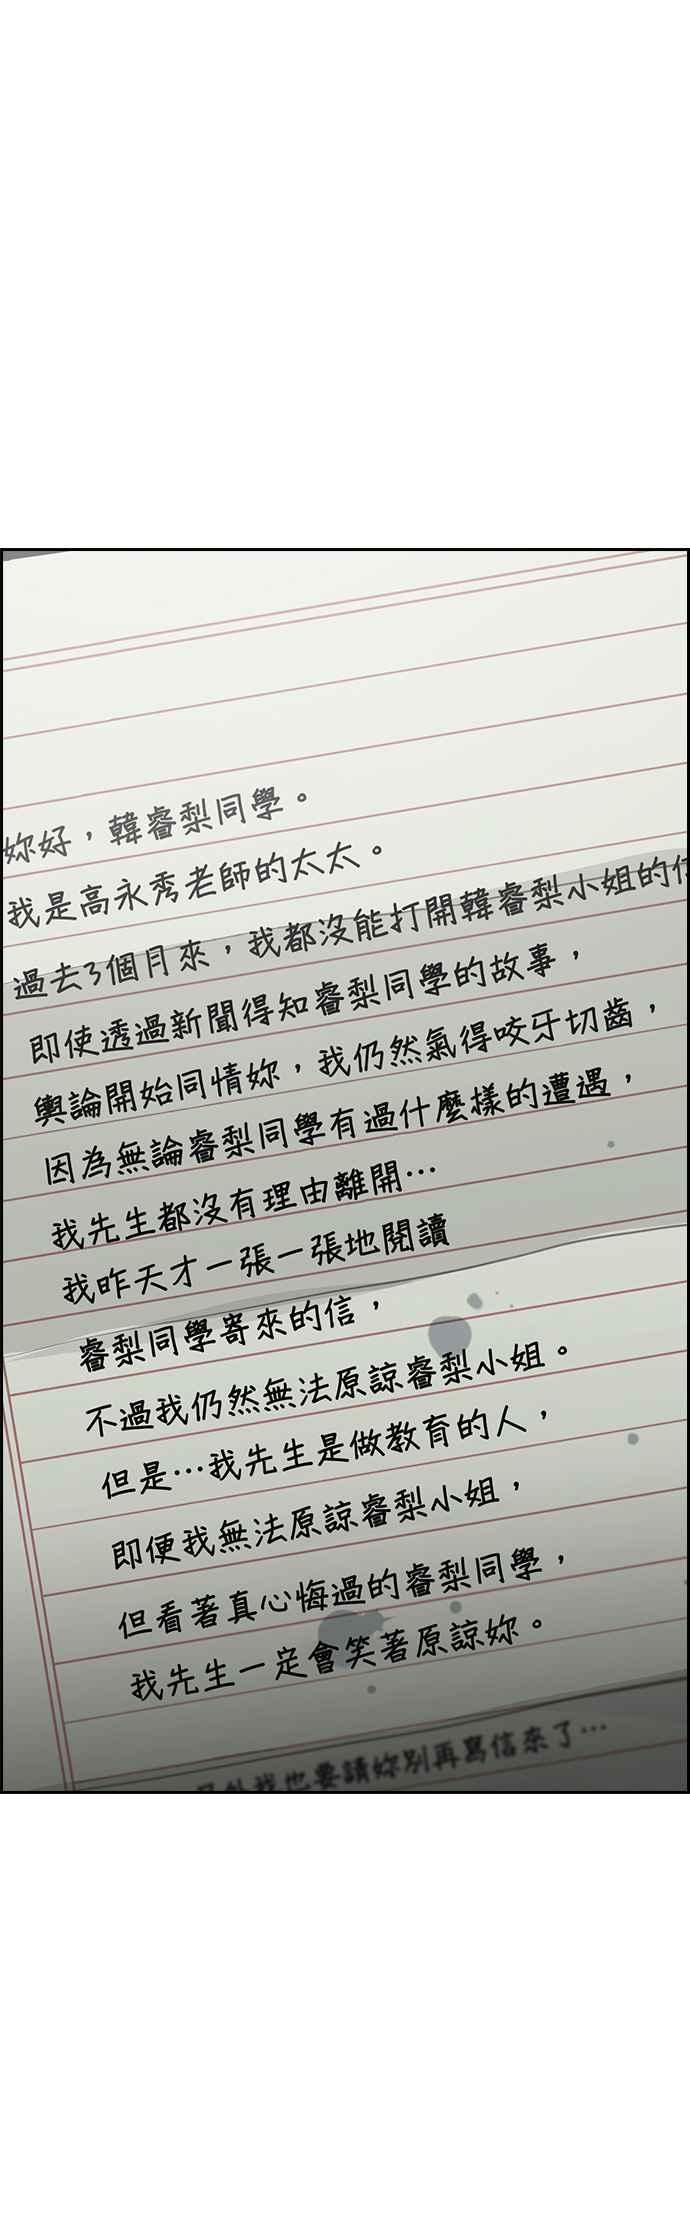 妳好，韓睿梨同學。
我是高永秀老師的太太。
過去3個月來，我都沒能打開韓睿梨小姐的信
即使透過新聞得知睿梨同學的故事，
輿論開始同情妳，我仍然氣得咬牙切齒，
因為無論睿梨同學有過什麼樣的遭遇，
我先生都沒有理由離開…
我昨天才一張一張地閱讀
睿梨同學寄來的信，
不過我仍然無法原諒睿梨小姐。
但是…我先生是做教育的人，
即便我無法原諒睿梨小姐，
但看著真心悔過的睿梨同學，
我先生一定會笑著原諒妳。
另外我也要請妳別再寫信來了…